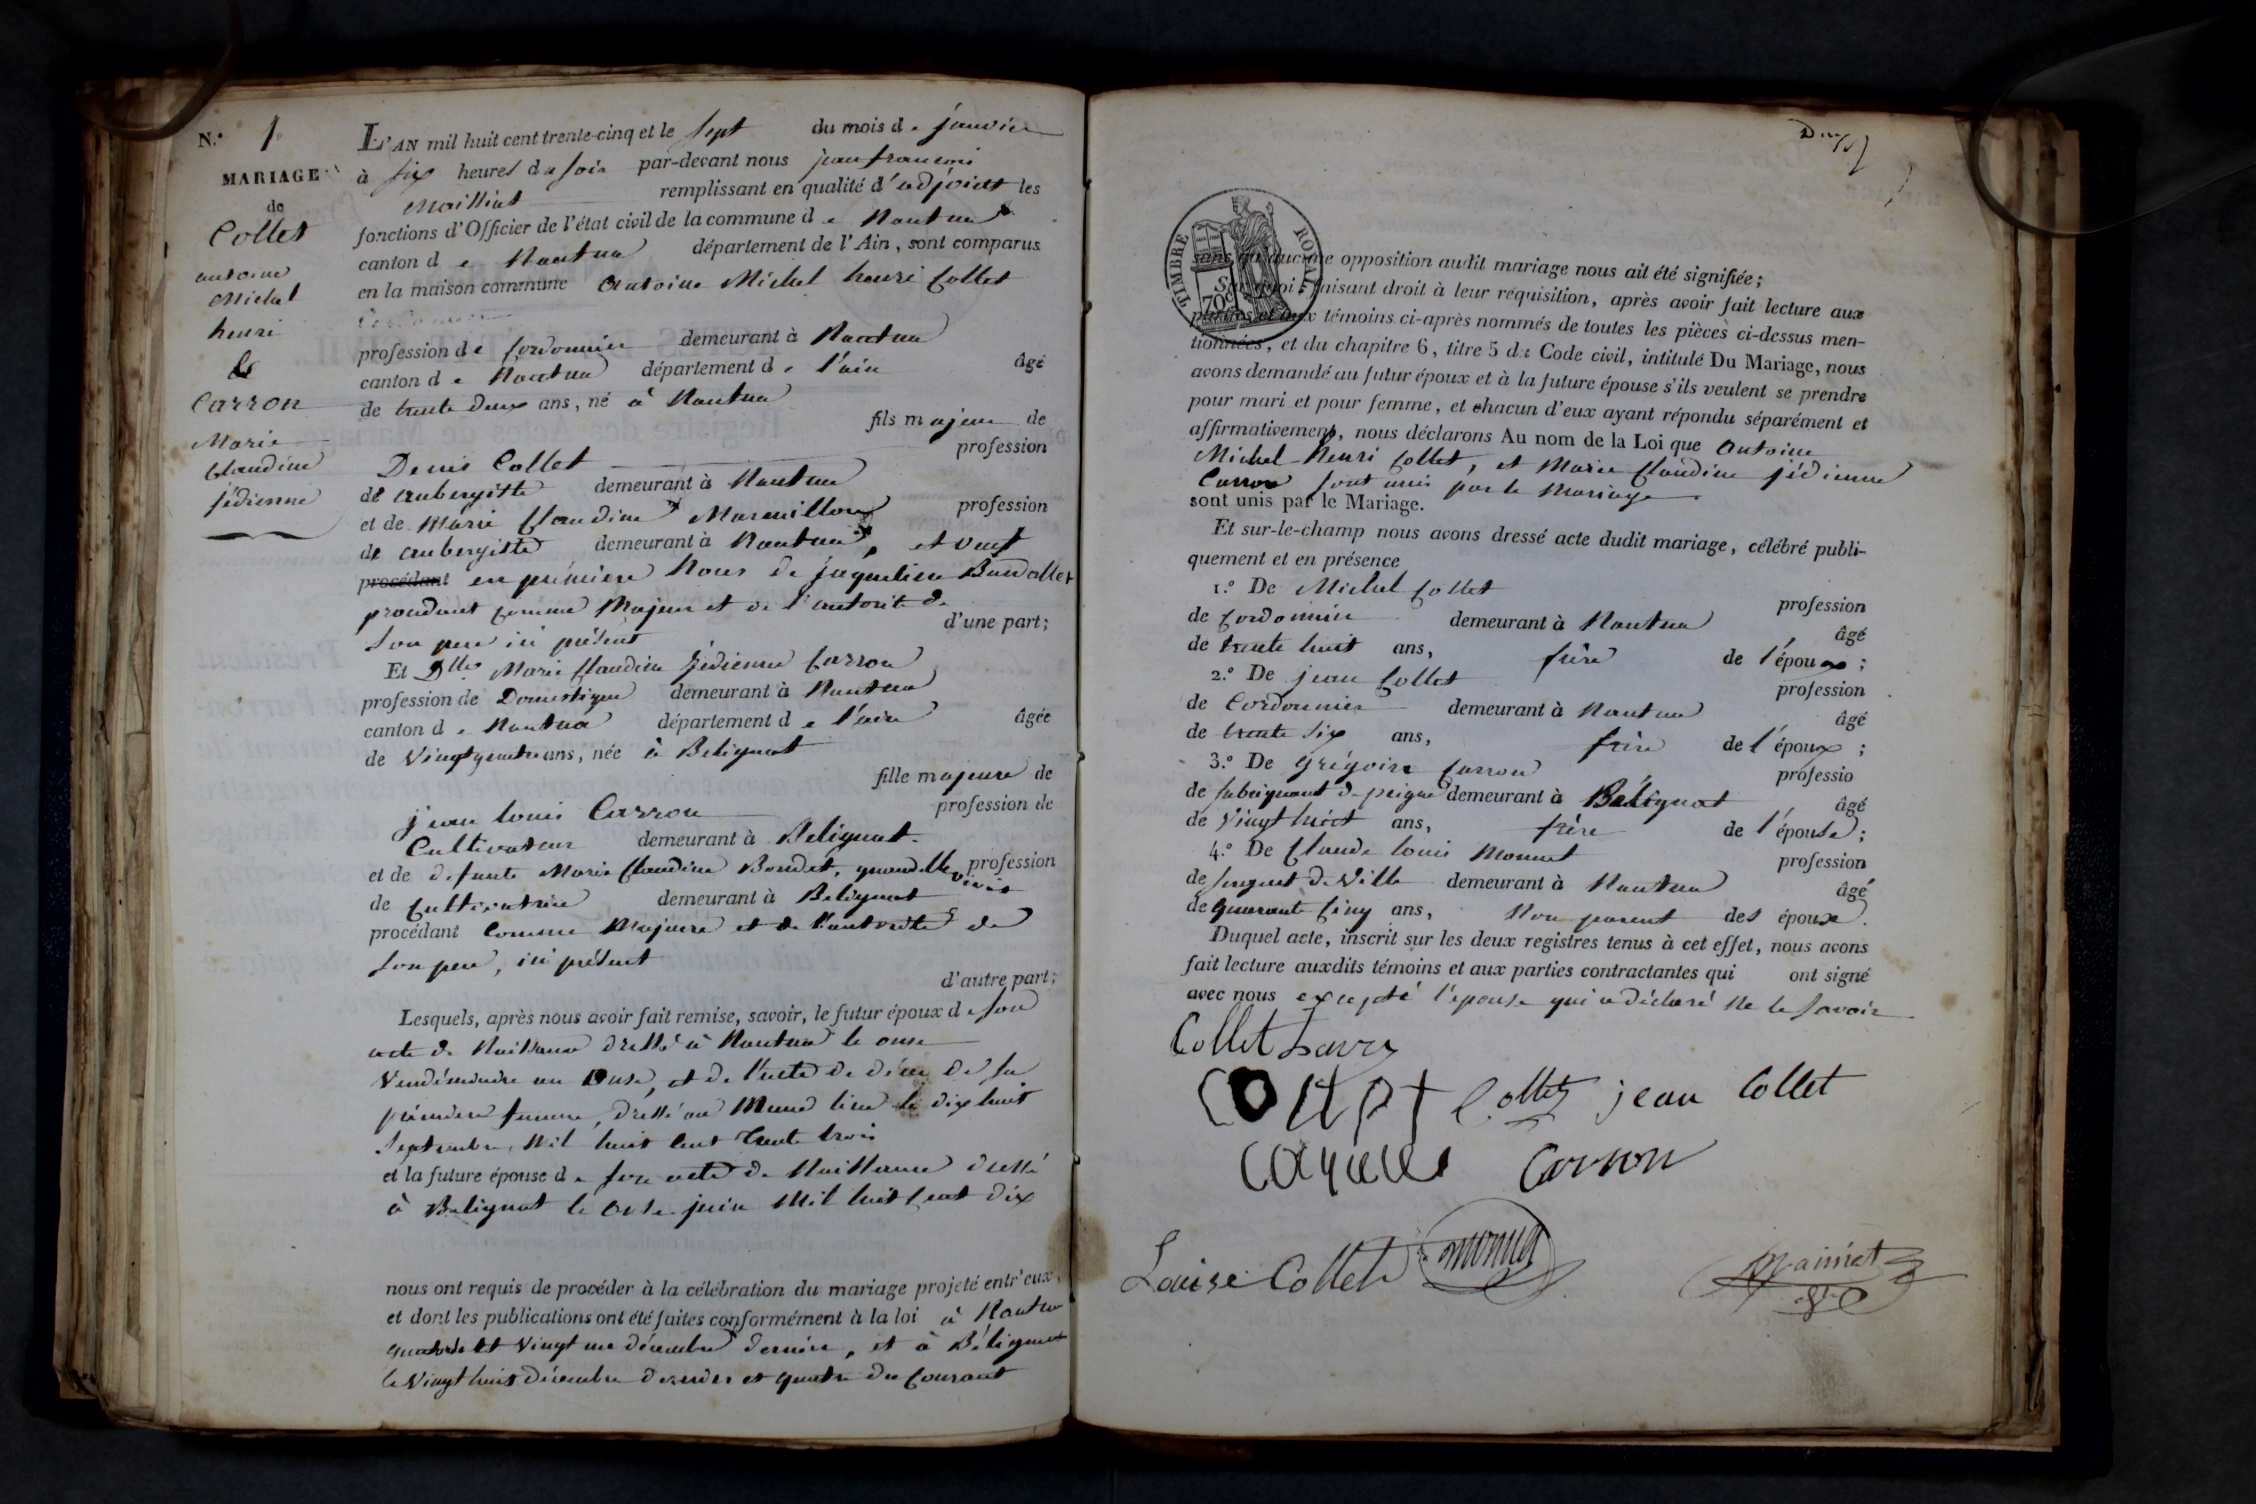 N.o 1.
MARIAGE
de
Collet
antoine
Michel
henri
&
Carron
Marie
Claudine
jédienne
L'AN mil huit cent trente-cinq et le sept du mois de janvier
à six heures du soir par-devant nous jean francois
Maillint remplissant en qualité d'adjoint les
fonctions d'Officier de l'état civil de la commune de Nantua
canton de Nantua département de l'Ain, sont comparus
en la maison commune Antoine Michel henri Collet
profession de Cordonnier demeurant à Nantua
canton de Nantua département de l'ain âgé
de trente deux ans, né à Nantua
fils majeur de
Denis Collet profession
de aubergiste demeurant à Nantua
et de Marie Claudine Marmillon profession
de aubergiste demeurant à Nantua, et veuf
procédant en premiere Noces de jaqueline
procedant comme Majeur et de l'autorité de
son pere ici présent d'une part;
Et Dlle Marie Claudine jédienne Carron
profession de Domestique demeurant à Nantua
canton de Nantua département de l'ain âgée
de Vingt quatre ans, née à Beligniat
fille majeure de
jean louis Carron profession de
Cultivateur demeurant à Belignat
et de defunte Marie Claudine Bondet, quand elle vivait profession
de Cultivatrice demeurant à Belignat
procédant Comme Majeure et de l'autorité de
son pere, ici présent
d'autre part;
Lesquels, après nous avoir fait remise, savoir, le futur époux de son
acte de Naissance dressé à Nantua le onze
Vendémiaire an onze, et de l'acte de décès de sa
première femme, dressé au Meme lieu le dix huit
Septembre Mil huit cent trente trois
et la future épouse de son acte de Naissance dressé
à Belignat le onze juin Mil huit cent dix
nous ont requis de procéder à la célébration du mariage projeté entr'eux,
et dont les publications ont été faites conformément à la loi à Nantua
quatorze et vingt un décembre dernier, et à Bélignat
le vingt huit décembre dernier et quatre du Courant
TIMBRE ROYAL
70c
sans qu'aucune opposition audit mariage nous ait été signifiée;
Sur quoi, faisant droit à leur réquisition, après avoir fait lecture aux
parties et aux témoins ci-après nommés de toutes les pièces ci-dessus men-
tionnées, et du chapitre 6, titre 5 du Code civil, intitulé Du Mariage, nous
avons demandé au futur époux et à la future épouse s'ils veulent se prendre
pour mari et pour femme, et chacun d'eux ayant répondu séparément et
affirmativement, nous déclarons Au nom de la Loi que Antoine
Michel Henri Collet, et Marie Claudine jédienne
Carron sont unis par le Mariage
sont unis par le Mariage.
Et sur-le-champ nous avons dressé acte dudit mariage, célébré publi-
quement et en présence
1.o De Michel Collet profession
de Cordonnier demeurant à Nantua âgé
de trente huit ans, frère de l'époux;
2.o De jean Collet profession
de Cordonnier demeurant à Nantua âgé
de trente six ans, frère de l'époux;
3.o De grégoire Carron professio
de fabriquant de peigne demeurant à Bélignat âgé
de Vingt huit ans, frère de l'épouse;
4.o De Claude louis Monnet profession
de sergent de Ville demeurant à Nantua âgé
de quarante cinq ans, Non parent des époux.
Duquel acte, inscrit sur les deux registres tenus à cet effet, nous avons
fait lecture auxdits témoins et aux parties contractantes qui ont signé
avec nous excepté l'épouse qui a déclaré ne le savoir
Collet
Collet jean Collet
Carron
Louise Collet